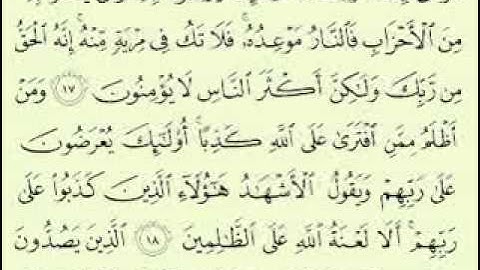 مِنَ ٱلْأَحْزَابِ فَٱلنَّارُ مَوْعِدُهُۥ ۚ فَلَا تَكُ فِى مِرْيَةٍ مِّنْهُ ۚ إِنَّهُ ٱلْحَقُّ
مِن رَّبِّكَ وَلَٰكِنَّ أَكْثَرَ ٱلنَّاسِ لَا يُؤْمِنُونَ ١٧ وَمَنْ
أَظْلَمُ مِمَّنِ ٱفْتَرَىٰ عَلَى ٱللَّهِ كَذِبًا ۚ أُو۟لَٰٓئِكَ يُعْرَضُونَ
عَلَىٰ رَبِّهِمْ وَيَقُولُ ٱلْأَشْهَٰدُ هَٰٓؤُلَآءِ ٱلَّذِينَ كَذَبُوا۟ عَلَىٰ
رَبِّهِمْ ۚ أَلَا لَعْنَةُ ٱللَّهِ عَلَى ٱلظَّٰلِمِينَ ١٨ ٱلَّذِينَ يَصُدُّونَ